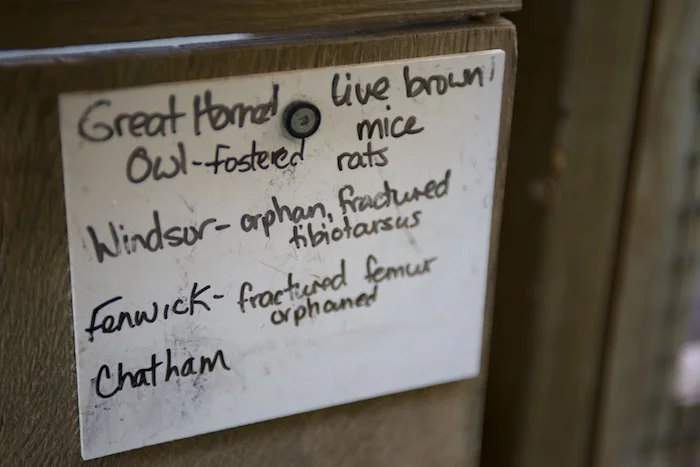 Great Horned
Owl-fostered
Live brown
mice
rats
Windsor- orphan, fractured
tibiotarsus
Fenwick- fractured femur
orphaned
Chatham